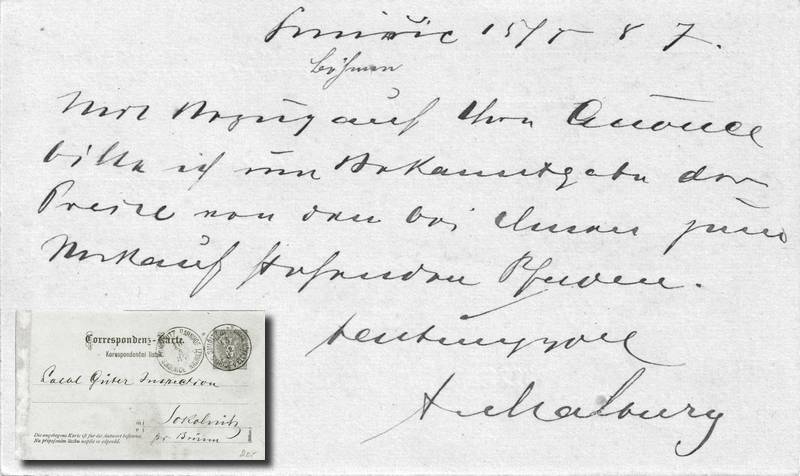 Smiřic 15/5 87.
Böhmen
Mit Bezug auf Ihre Anonce
bitte ich um Bekanntgabe der
Preise von den bei Ihnen zum
Verkauf stehenden Pfauen.
Achtungsvoll
Correspondenz-Karte.
Korespondenční lístek.
Local Güter Inspection
Sokolnitz
pr Brünn
Die angebogene Karte ist für die Antwort bestimmt.
Na připojeném lístku napíše se odpověď.